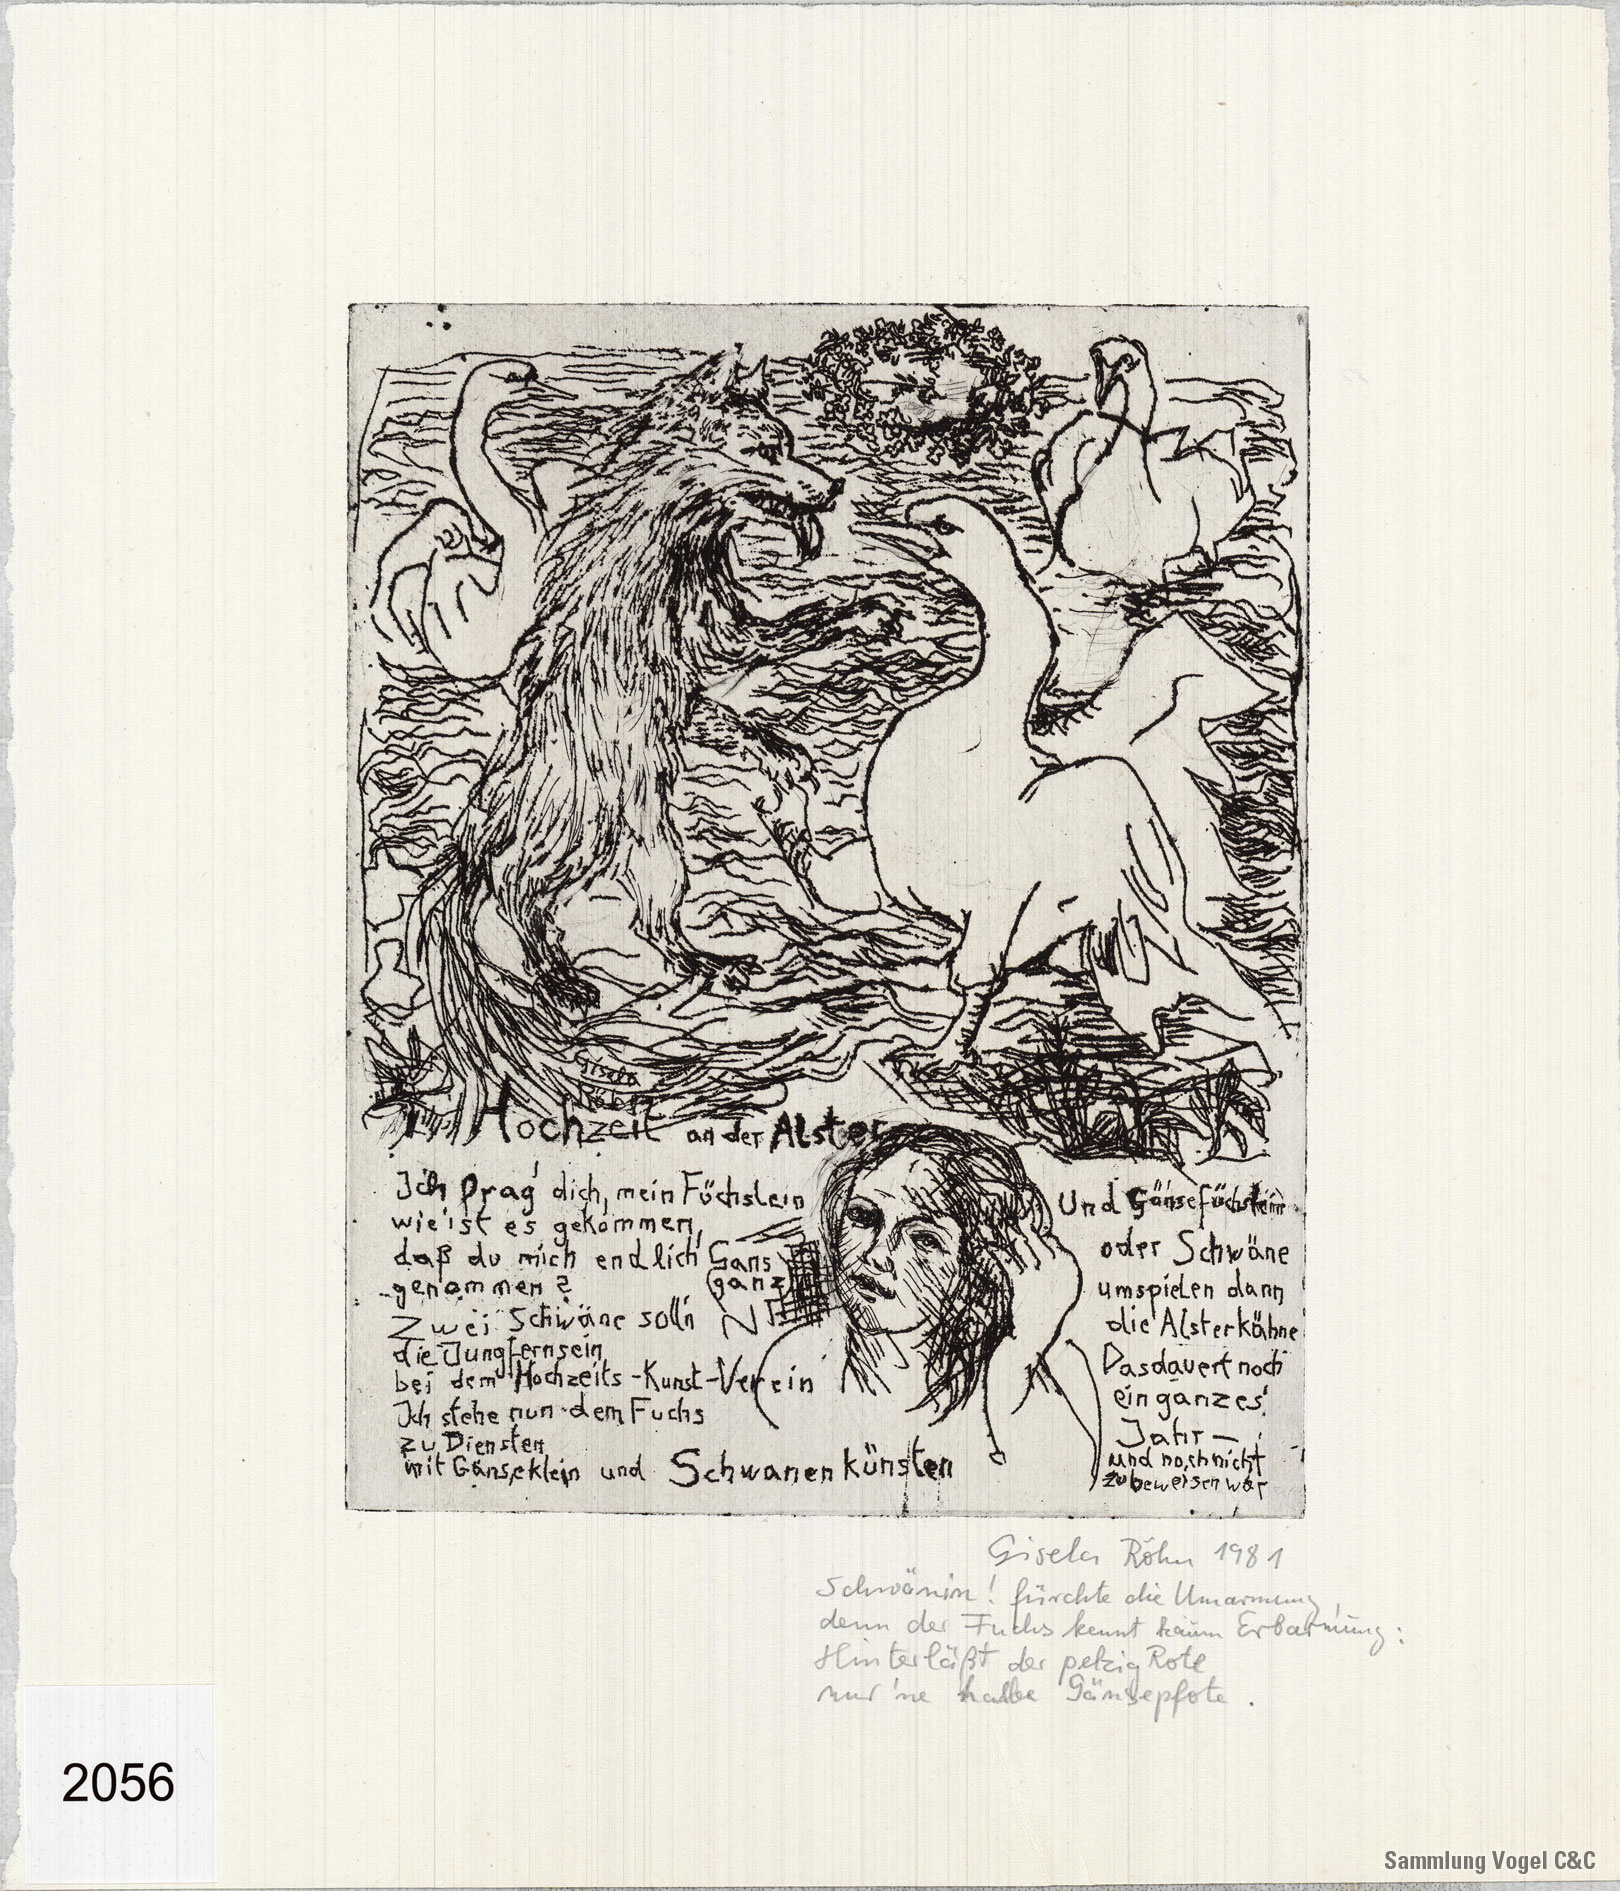 Gisela
Hochzeit an der Alster
Ich frag' dich, mein Füchslein
wie ist es gekommen,
daß du mich endlich Gans
(ganz)
genommen?
Zwei Schwäne soll'n
die Jungfernsein
bei dem Hochzeits-Kunst-Verein
Ich stehe nun dem Fuchs
zu Diensten
mit Gänseklein und Schwanenkünsten
Und Gänsefüchslein
oder Schwäne
umspielen dann
die Alsterkähne
Das dauert noch
ein ganzes
Jahr –
und noch nicht
zu beweisen war
Gisela Röhn 1981
Schwänin! fürchte die Umarmung,
denn der Fuchs kennt kaum Erbarmung:
Hinterläßt der pelzig Rote
nur 'ne halbe Gänsepfote.
2056
Sammlung Vogel C&C